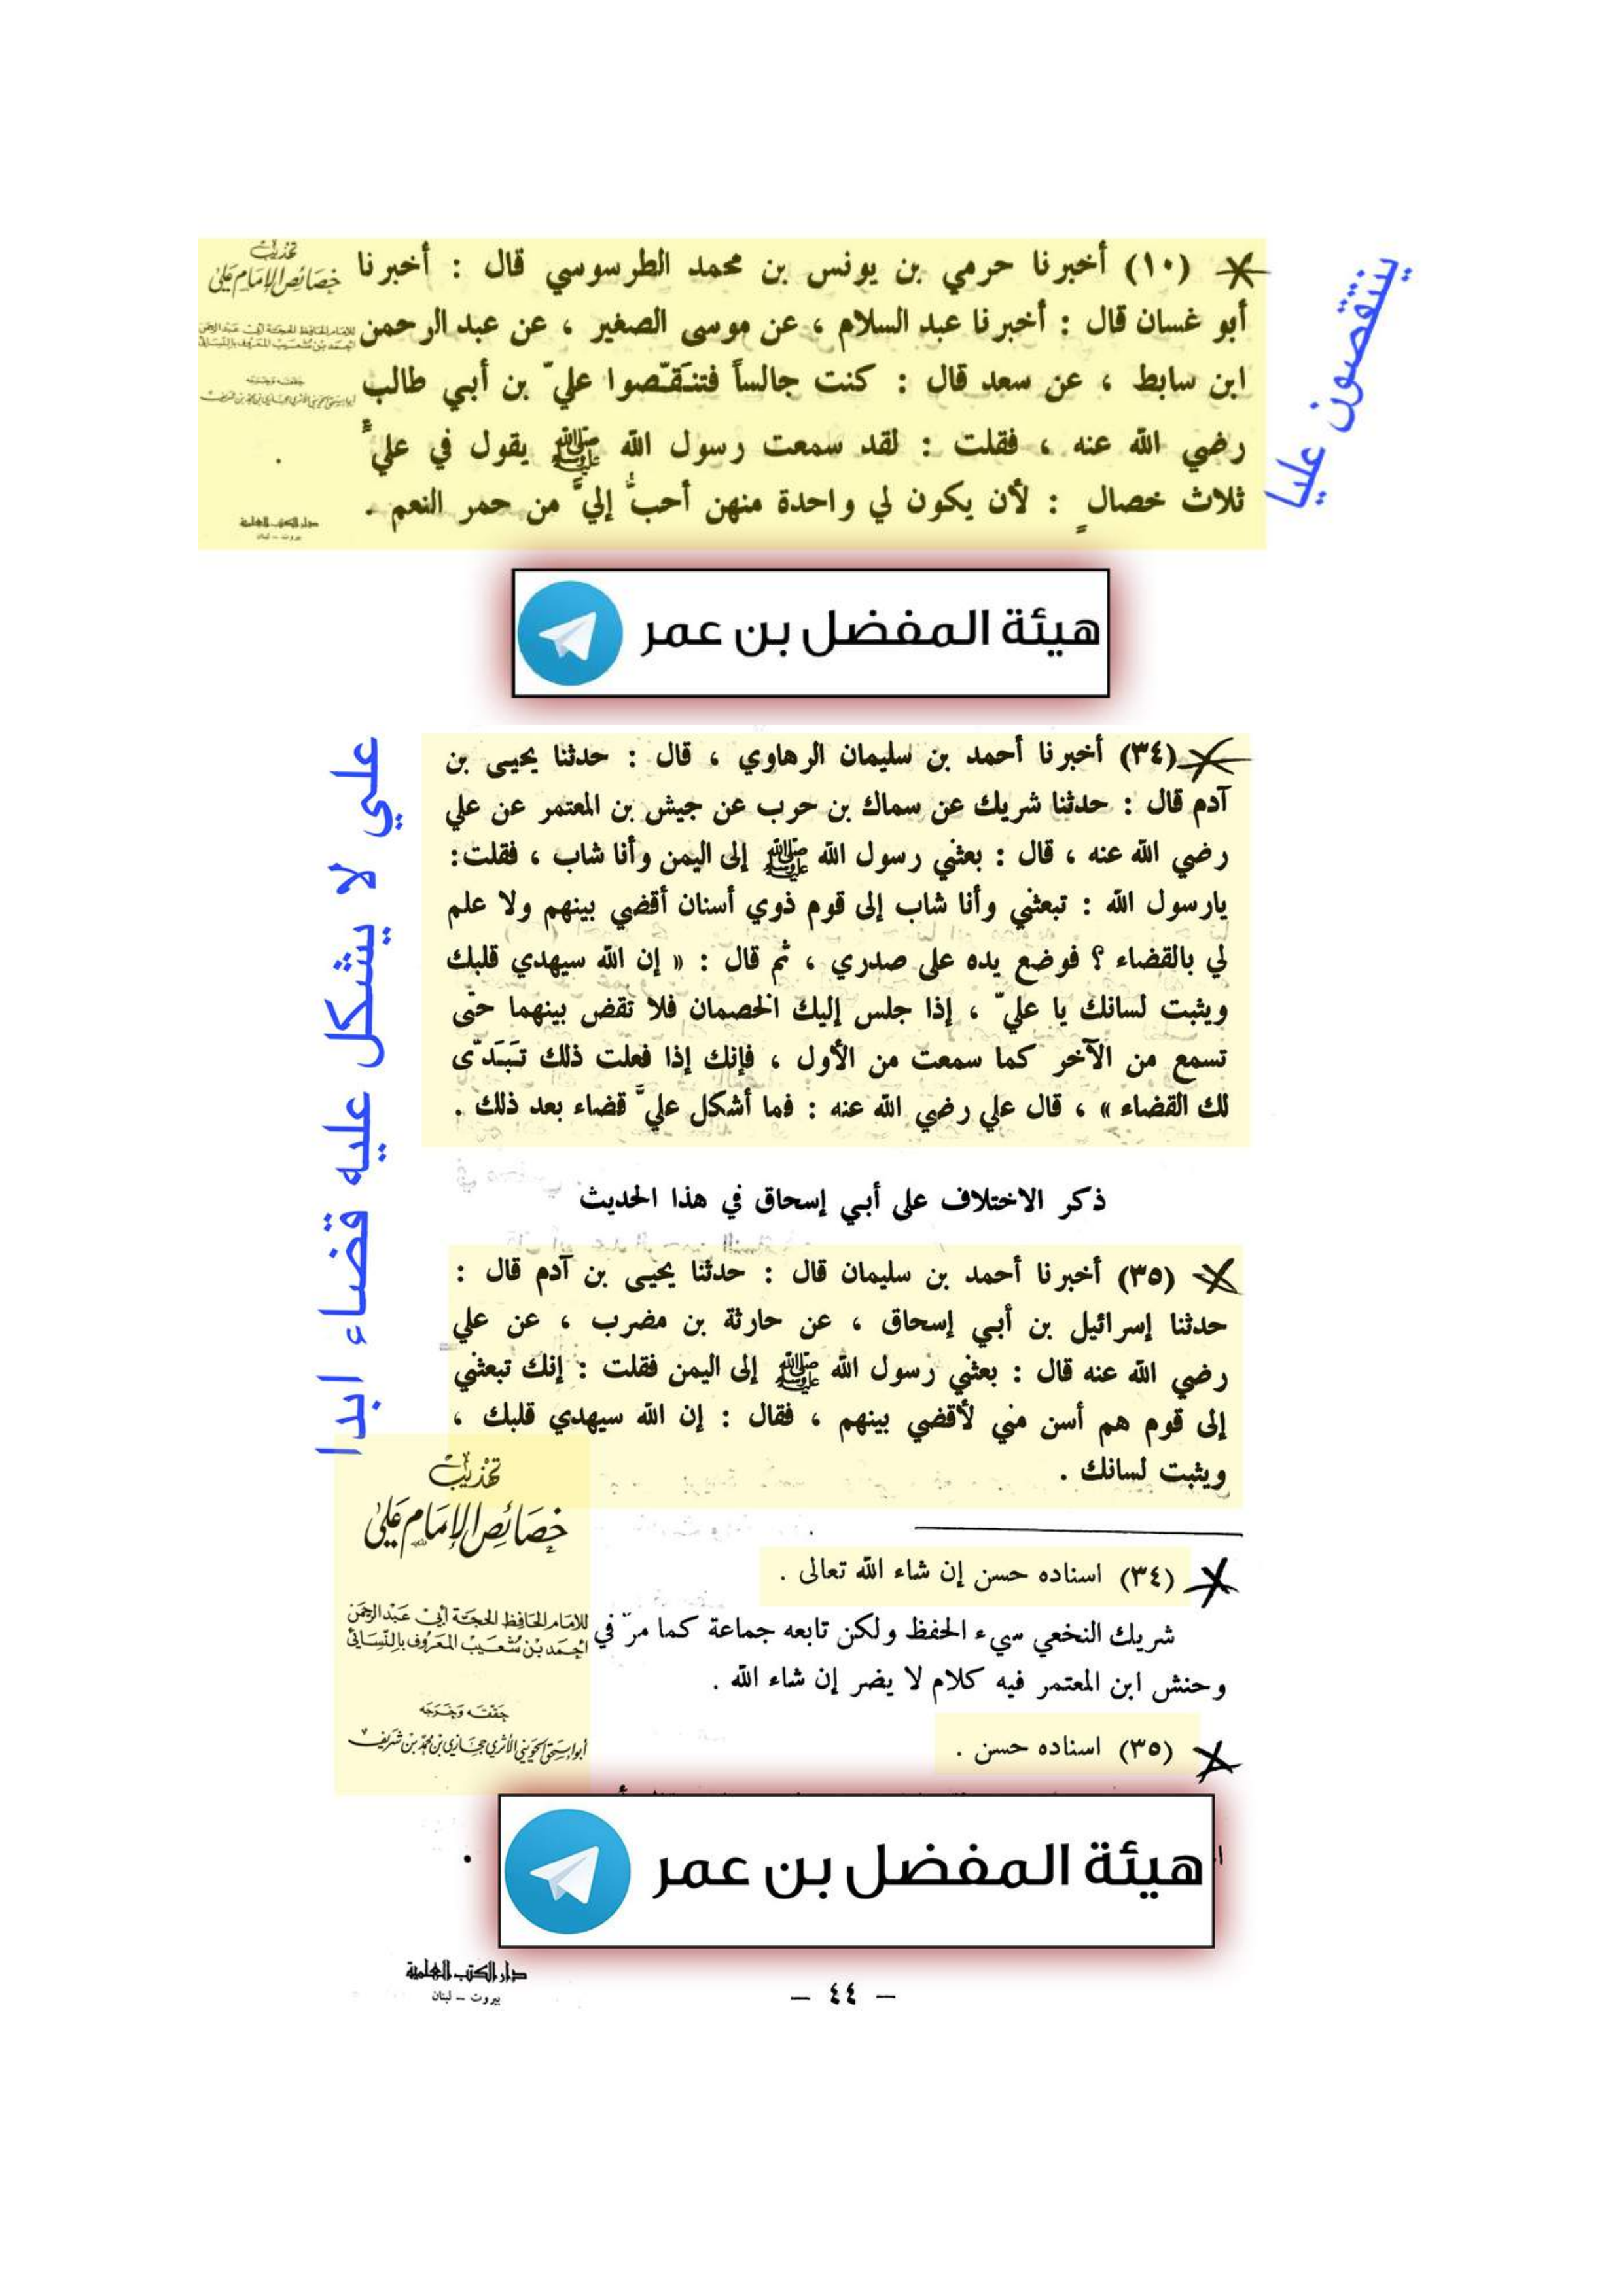 (١٠) أخبرنا حرمي بن يونس بن محمد الطرسوسي قال : أخبرنا
أبو غسان قال : أخبرنا عبد السلام ، عن موسى الصغير ، عن عبد الرحمن
ابن سابط ، عن سعد قال : كنت جالساً فتنقّصوا عليّ بن أبي طالب
رضي الله عنه ، فقلت : لقد سمعت رسول الله ﷺ يقول في عليٍّ
ثلاث خصالٍ : لأن يكون لي واحدة منهن أحبُّ إليَّ من حمر النعم .
تهذيب
خصائص الإمام علي
للامام الحافظ الحجة أبي عبد الرحمن
أحمد بن شعيب المعروف بالنسائي
دار الكتب العلمية
بيروت - لبنان
ينتقصون عليا
هيئة المفضل بن عمر
علي لا يشكل عليه قضاء ابدا
(٣٤) أخبرنا أحمد بن سليمان الرهاوي ، قال : حدثنا يحيى بن
آدم قال : حدثنا شريك عن سماك بن حرب عن جيش بن المعتمر عن علي
رضي الله عنه ، قال : بعثني رسول الله ﷺ إلى اليمن وأنا شاب ، فقلت :
يارسول الله : تبعثني وأنا شاب إلى قوم ذوي أسنان أقضي بينهم ولا علم
لي بالقضاء ؟ فوضع يده على صدري ، ثم قال : « إن الله سيهدي قلبك
ويثبت لسانك يا عليّ ، إذا جلس إليك الخصمان فلا تقض بينهما حتّى
تسمع من الآخر كما سمعت من الأول ، فإنك إذا فعلت ذلك تَبَدّى
لك القضاء » ، قال علي رضي الله عنه : فما أشكل عليَّ قضاء بعد ذلك .
ذكر الاختلاف على أبي إسحاق في هذا الحديث
(٣٥) أخبرنا أحمد بن سليمان قال : حدثنا يحيى بن آدم قال :
حدثنا إسرائيل بن أبي إسحاق ، عن حارثة بن مضرب ، عن علي
رضي الله عنه قال : بعثني رسول الله ﷺ إلى اليمن فقلت : إنك تبعثني
إلى قوم هم أسن مني لأقضي بينهم ، فقال : إن الله سيهدي قلبك ،
ويثبت لسانك .
تهذيب
خصائص الإمام علي
للامام الحافظ الحجة أبي عبد الرحمن
أحمد بن شعيب المعروف بالنسائي
حققه وخرجه
أبو إسحق الحويني الأثري حجازي بن محمد بن شريف
(٣٤) اسناده حسن إن شاء الله تعالى .
شريك النخعي سيء الحفظ ولكن تابعه جماعة كما مرّ في
وحنش ابن المعتمر فيه كلام لا يضر إن شاء الله .
(٣٥) اسناده حسن .
هيئة المفضل بن عمر
دار الكتب العلمية
بيروت - لبنان
- ٤٤ -